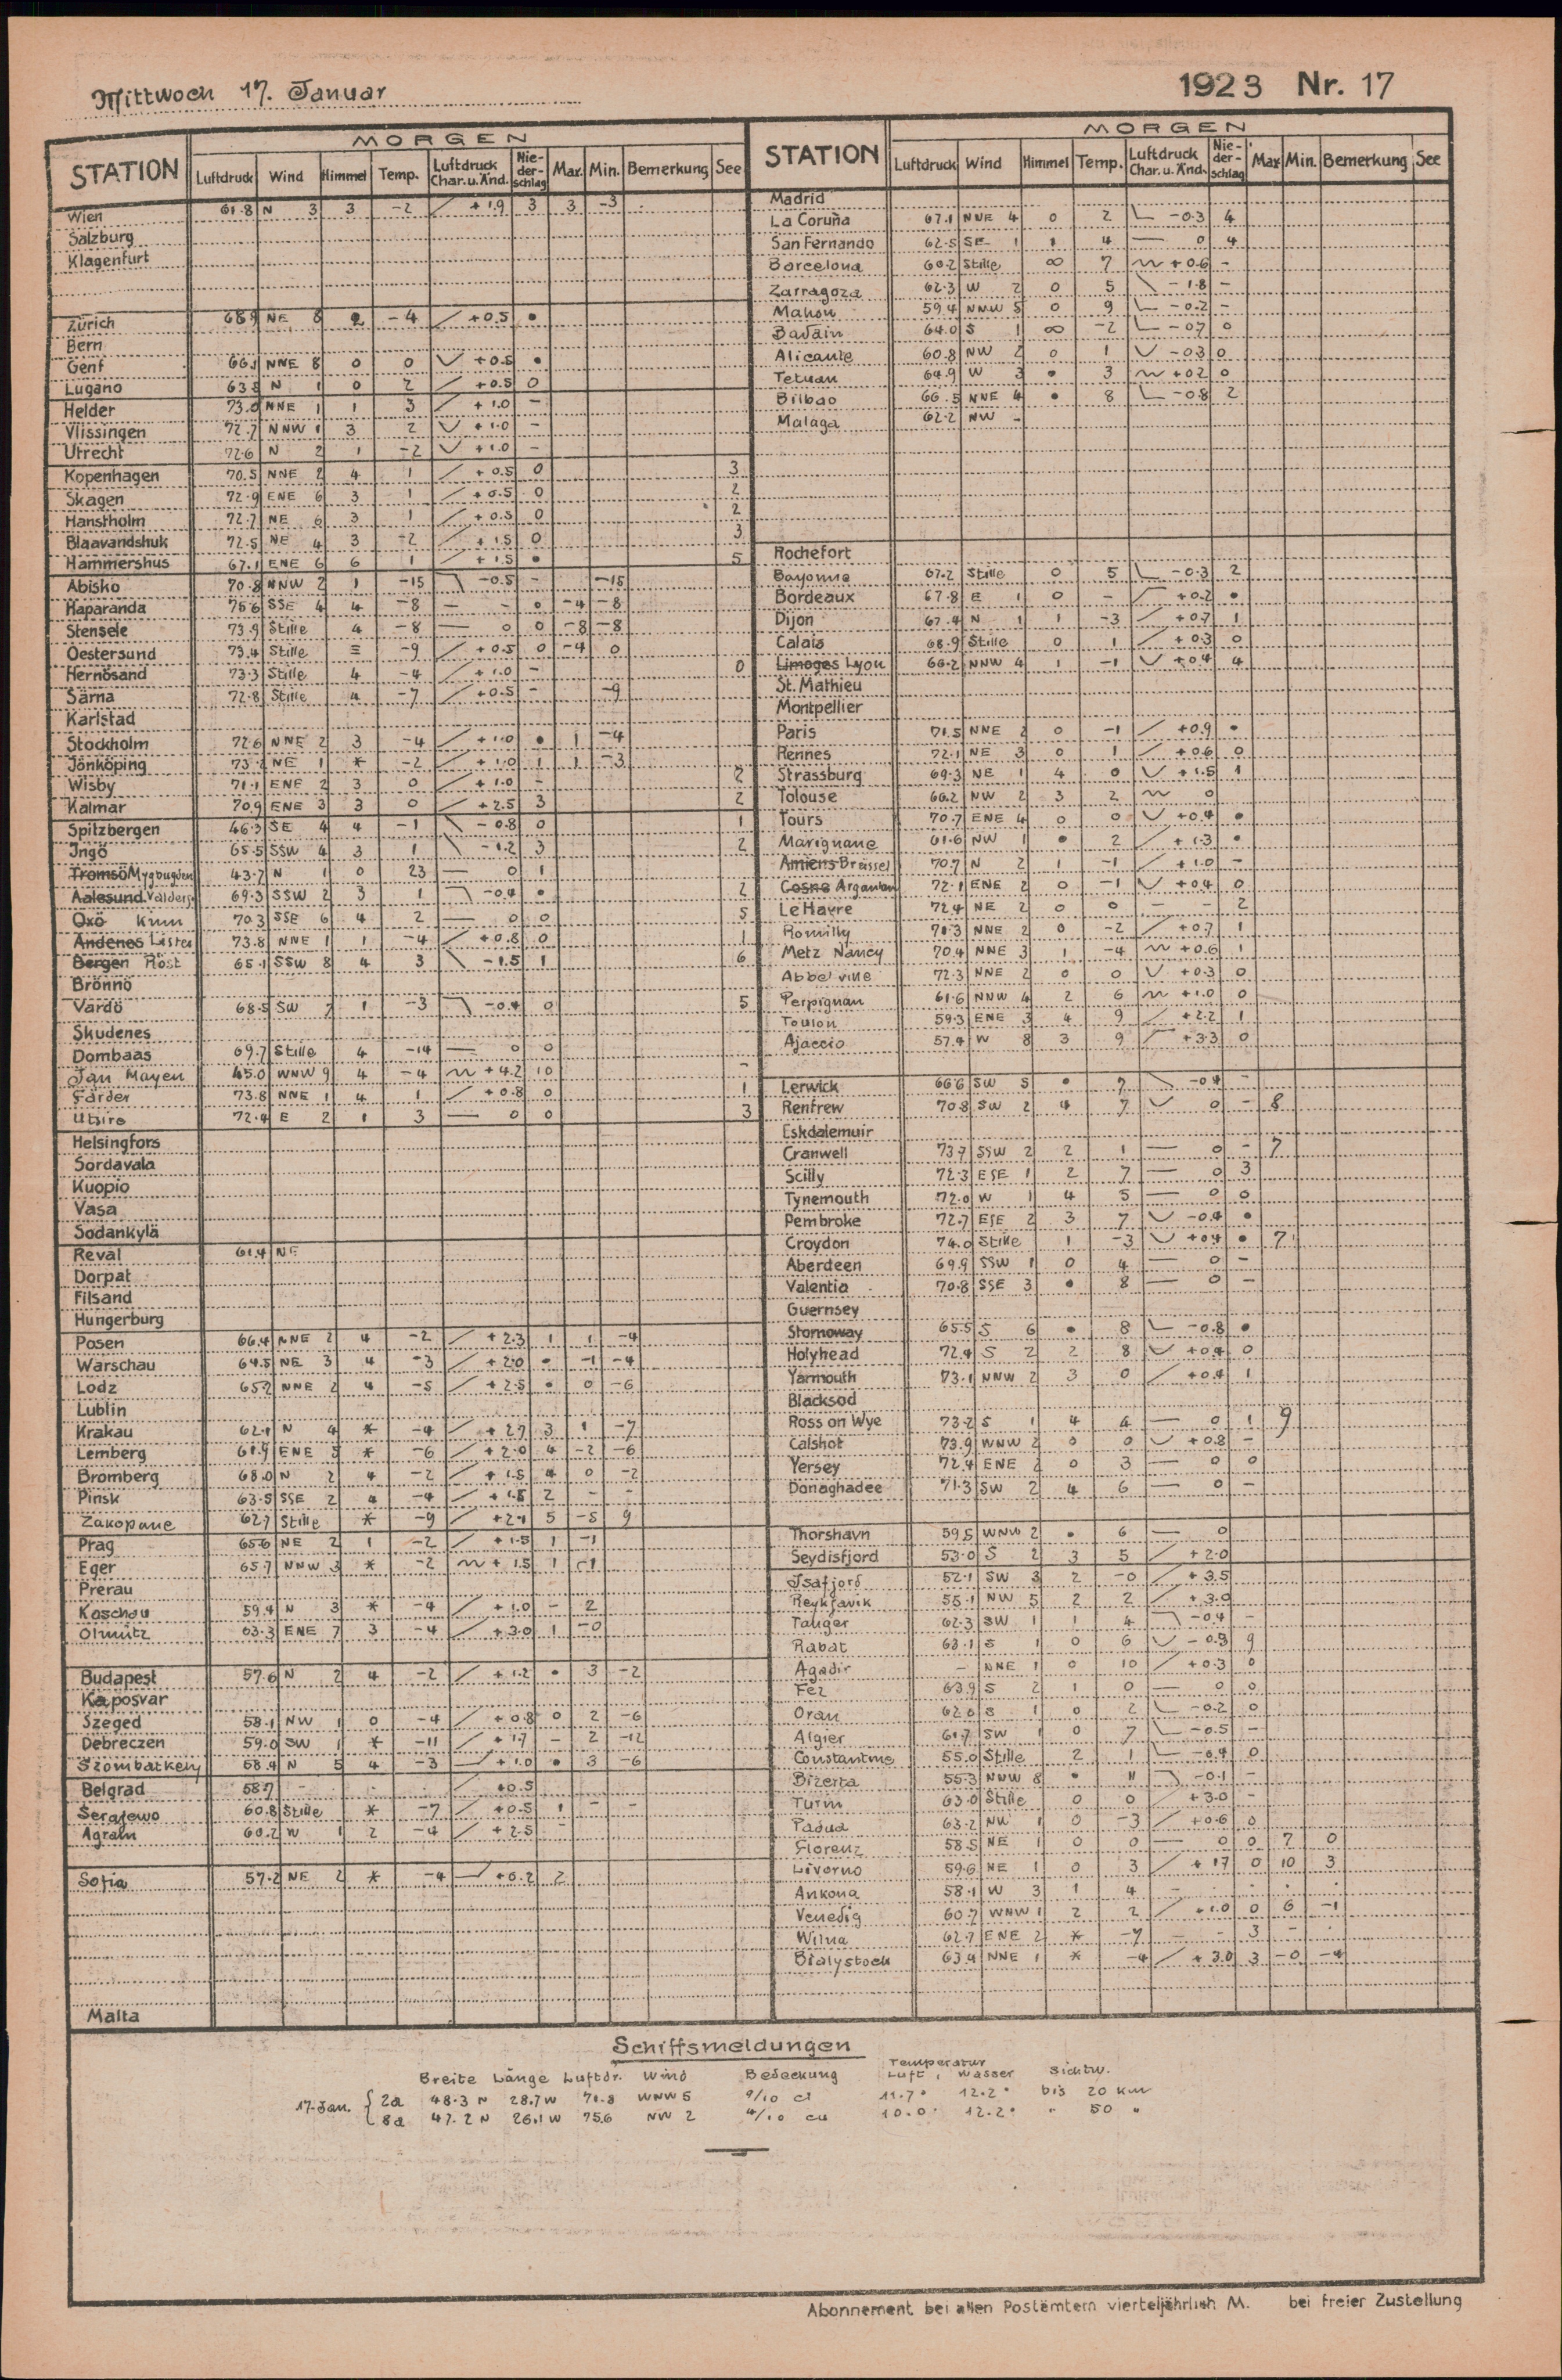 Mittwoch 17. Januar
1923 Nr. 17
STATION MORGEN
Luftdruck Wind Himmel Temp. Luftdruck Char. u. Änd. Nie-der-schlag Max. Min. Bemerkung See
Wien 61.8 N 3 3 -2 +1.9 3 3 -3
Salzburg
Klagenfurt
Zürich 68.9 NE 8 2 -4 +0.5 •
Bern
Genf 66.1 NNE 8 0 0 +0.5 •
Lugano 63.8 N 1 0 2 +0.5 0
Helder 73.0 NNE 1 1 3 +1.0 -
Vlissingen 72.7 NNW 1 3 2 +1.0 -
Utrecht 72.6 N 2 1 -2 +1.0 -
Kopenhagen 70.5 NNE 2 4 1 +0.5 0 3
Skagen 72.9 ENE 6 3 1 +0.5 0 2
Hanstholm 72.7 NE 6 3 1 +0.5 0 2
Blaavandshuk 72.5 NE 4 3 -2 +1.5 0 3
Hammershus 67.1 ENE 6 6 1 +1.5 • 5
Abisko 70.8 NNW 2 1 -15 -0.5 - -15
Haparanda 75.6 SSE 4 4 -8 — - 0 -4 -8
Stensele 73.9 Stille 4 -8 — 0 0 -8 -8
Oestersund 73.4 Stille ≡ -9 +0.5 0 -4 0
Hernösand 73.3 Stille 4 -4 +1.0 - 0
Särna 72.8 Stille 4 -7 +0.5 - -9
Karlstad
Stockholm 72.6 NNE 2 3 -4 +1.0 • 1 -4
Jönköping 73.2 NE 1 * -2 +1.0 1 1 -3
Wisby 71.1 ENE 2 3 0 +1.0 - 2
Kalmar 70.9 ENE 3 3 0 +2.5 3 2
Spitzbergen 46.3 SE 4 4 -1 -0.8 0 1
Ingö 65.5 SSW 4 3 1 -1.2 3 2
Tromsö Mygbugden 43.7 N 1 0 23 — 0 1
Aalesund Valders 69.3 SSW 2 3 1 -0.4 • 2
Oxö Kinn 70.3 SSE 6 4 2 — 0 0 5
Andenes Lister 73.8 NNE 1 1 -4 +0.8 0 1
Bergen Röst 65.1 SSW 8 4 3 -1.5 1 6
Brönnö
Vardö 68.5 SW 7 1 -3 -0.4 0 5
Skudenes
Dombaas 69.7 Stille 4 -14 — 0 0
Jan Mayen 45.0 WNW 9 4 -4 +4.2 10 -
Färder 73.8 NNE 1 4 1 +0.8 0 1
Utsire 72.4 E 2 1 3 — 0 0 3
Helsingfors
Sordavala
Kuopio
Vasa
Sodankylä
Reval 61.4 NE
Dorpat
Filsand
Hungerburg
Posen 66.4 NNE 2 4 -2 +2.3 1 1 -4
Warschau 64.5 NE 3 4 -3 +2.0 • -1 -4
Lodz 65.7 NNE 2 4 -5 +2.5 • 0 -6
Lublin
Krakau 62.1 N 4 * -4 +2.7 3 1 -7
Lemberg 61.9 ENE 5 * -6 +2.0 4 -2 -6
Bromberg 68.0 N 2 4 -2 +1.5 4 0 -2
Pinsk 63.5 SSE 2 4 -4 +1.5 2 - -
Zakopane 62.7 Stille * -9 +2.1 5 -5 9
Prag 65.6 NE 2 1 -2 +1.5 1 -1
Eger 65.7 NNW 3 * -2 +1.5 1 -1
Prerau
Kaschau 59.4 N 3 * -4 +1.0 - 2
Olmütz 63.3 ENE 7 3 -4 +3.0 1 -0
Budapest 57.6 N 2 4 -2 +1.2 • 3 -2
Kaposvar
Szeged 58.1 NW 1 0 -4 +0.8 0 2 -6
Debreczen 59.0 SW 1 * -11 +1.7 - 2 -12
Szombatkely 58.4 N 5 4 -3 +1.0 • 3 -6
Belgrad 58.7 - - - +0.5
Serajewo 60.8 Stille * -7 +0.5 1 - -
Agram 60.2 W 1 2 -4 +2.5 -
Sofia 57.2 NE 2 * -4 +0.2 2
Malta
STATION MORGEN
Luftdruck Wind Himmel Temp. Luftdruck Char. u. Änd. Nie-der-schlag Max. Min. Bemerkung See
Madrid
La Coruña 67.1 NNE 4 0 2 -0.3 4
San Fernando 62.5 SE 1 1 4 — 0 4
Barcelona 60.2 Stille ∞ 7 +0.6 -
Zarragoza 62.3 W 2 0 5 -1.8 -
Mahon 59.4 NNW 5 0 9 -0.2 -
64.0 S 1 ∞ -2 -0.7 0
Alicante 60.8 NW 2 0 1 -0.3 0
Tetuan 64.9 W 3 • 3 +0.2 0
Bilbao 66.5 NNE 4 • 8 -0.8 2
Malaga 62.2 NW -
Rochefort
Bayonne 67.2 Stille 0 5 -0.3 2
Bordeaux 67.8 E 1 0 - +0.2 •
Dijon 67.4 N 1 1 -3 +0.7 1
Calais 68.9 Stille 0 1 +0.3 0
Limoges Lyon 66.2 NNW 4 1 -1 +0.4 4
St. Mathieu
Montpellier
Paris 71.5 NNE 2 0 -1 +0.9 •
Rennes 72.1 NE 3 0 1 +0.6 0
Strassburg 69.3 NE 1 4 0 +1.5 1
Tolouse 66.2 NW 2 3 2 0
Tours 70.7 ENE 4 0 0 +0.4 •
Marignane 61.6 NW 1 • 2 +1.3 •
Amiens Brüssel 70.7 N 2 1 -1 +1.0 -
Cosne Argentan 72.1 ENE 2 0 -1 +0.4 0
Le Havre 72.4 NE 2 0 0 - - 2
Romilly 71.3 NNE 2 0 -2 +0.7 1
Metz Nancy 70.4 NNE 3 1 -4 +0.6 1
Abbeville 72.3 NNE 2 0 0 +0.3 0
Perpignan 61.6 NNW 4 2 6 +1.0 0
Toulon 59.3 ENE 3 4 9 +2.2 1
Ajaccio 57.4 W 8 3 9 +3.3 0
Lerwick 66.6 SW 5 • 7 -0.4 -
Renfrew 70.8 SW 2 4 7 0 - 8
Eskdalemuir
Cranwell 73.7 SSW 2 2 1 — 0 - 7
Scilly 72.3 ESE 1 2 7 — 0 3
Tynemouth 72.0 W 1 4 5 — 0 0
Pembroke 72.7 ESE 2 3 7 -0.4 •
Croydon 74.0 Stille 1 -3 +0.4 • 7
Aberdeen 69.9 SSW 1 0 4 — 0 -
Valentia 70.8 SSE 3 • 8 — 0 -
Guernsey
Stornoway 65.5 S 6 • 8 -0.8 •
Holyhead 72.4 S 2 2 8 +0.4 0
Yarmouth 73.1 NNW 2 3 0 +0.4 1
Blacksod
Ross on Wye 73.2 S 1 4 4 — 0 1 9
Calshot 73.9 WNW 2 0 0 +0.8 -
Yersey 72.4 ENE 2 0 3 — 0 0
Donaghadee 71.3 SW 2 4 6 — 0 -
Thorshavn 59.5 WNW 2 • 6 — 0
Seydisfjord 53.0 S 2 3 5 +2.0
Isafjord 52.1 SW 3 2 -0 +3.5
Reykjavik 55.1 NW 5 2 2 +3.0
Tanger 62.3 SW 1 1 4 -0.4 -
Rabat 63.1 S 1 0 6 -0.3 9
Agadir - NNE 1 0 10 +0.3 0
Fez 63.9 S 2 1 0 — 0 0
Oran 62.6 S 1 0 2 -0.2 0
Algier 61.7 SW 1 0 7 -0.5 -
Constantine 55.0 Stille 2 1 -0.4 0
Bizerta 55.3 NNW 8 • 11 -0.1 -
Turin 63.0 Stille 0 0 +3.0 -
Padua 63.2 NW 1 0 -3 +0.6 0
Florenz 58.5 NE 1 0 0 — 0 0 7 0
Livorno 59.6 NE 1 0 3 +1.7 0 10 3
Ankona 58.1 W 3 1 4 -
Venedig 60.7 WNW 1 2 2 +1.0 0 6 -1
Wilna 62.7 ENE 2 * -7 - - 3 -
Bialystock 63.4 NNE 1 * -4 +3.0 3 -0 -4
Schiffsmeldungen
Breite Länge Luftdr. Wind Bedeckung Temperatur Luft, Wasser Sichtw.
17. Jan. { 2a 48.3 N 28.7 W 71.8 WNW 5 9/10 ci 11.7° 12.2° bis 20 km
8a 47.2 N 26.1 W 75.6 NW 2 4/10 cu 10.0° 12.2° " 50 "
Abonnement bei allen Postämtern vierteljährlich M. bei freier Zustellung